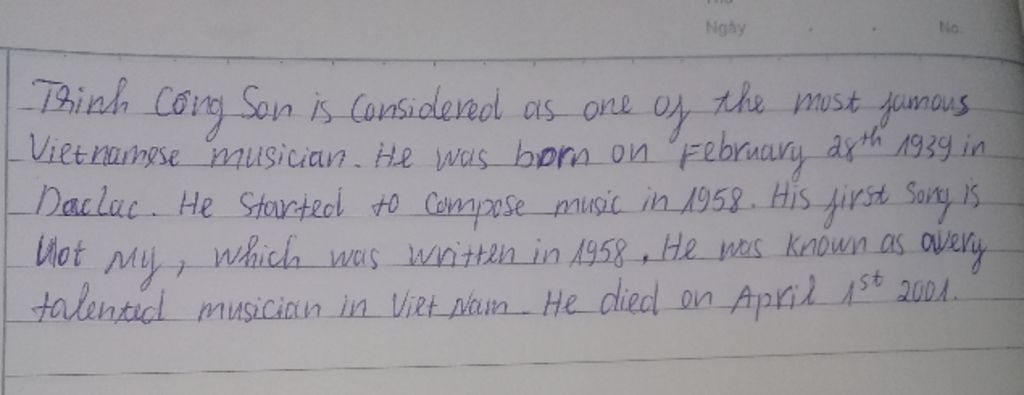 Ngày No.
Trinh Công Son is considered as one of the most famous
Vietnamese musician. He was born on February 28th 1939 in
Daclac. He started to compose music in 1958. His first song is
Uot My, which was written in 1958. He was known as avery
talented musician in Viet Nam. He died on April 1st 2001.